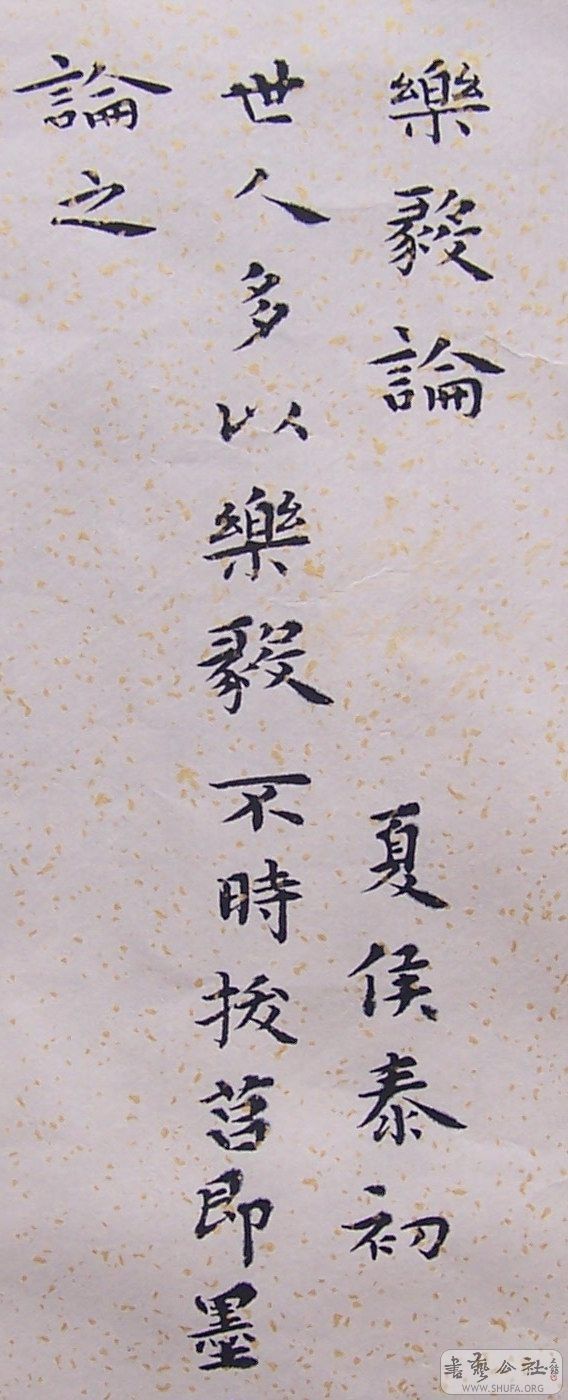 樂毅論 夏侯泰初
世人多以樂毅不時拔莒即墨
論之
書藝公社
WWW.SHUFA.ORG